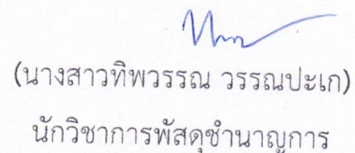 (นางสาวทิพวรรณ วรรณปะเก)
นักวิชาการพัสดุชำนาญการ